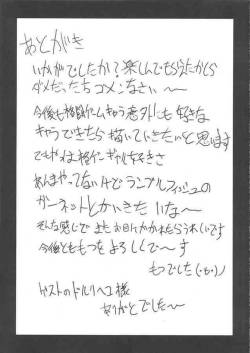 あとがき
いかがでしたか?楽しんでもらえたかしら
ダメだったらゴメンなさい〜
今後も格闘ゲームキャラ意外にも好きな
キャラできたら描いていきたいと思います
でもやはり格ゲーギャル好きさ
あんまやってないけどランブルフィッシュの
ガーネットとかかきたいな〜
そんな感じでまたお目にかかれたらうれしいです
今後とももつをよろしくで〜す
もつでした(・ω・)ノ
ゲストのドルリヘコ様
ありがとでした〜